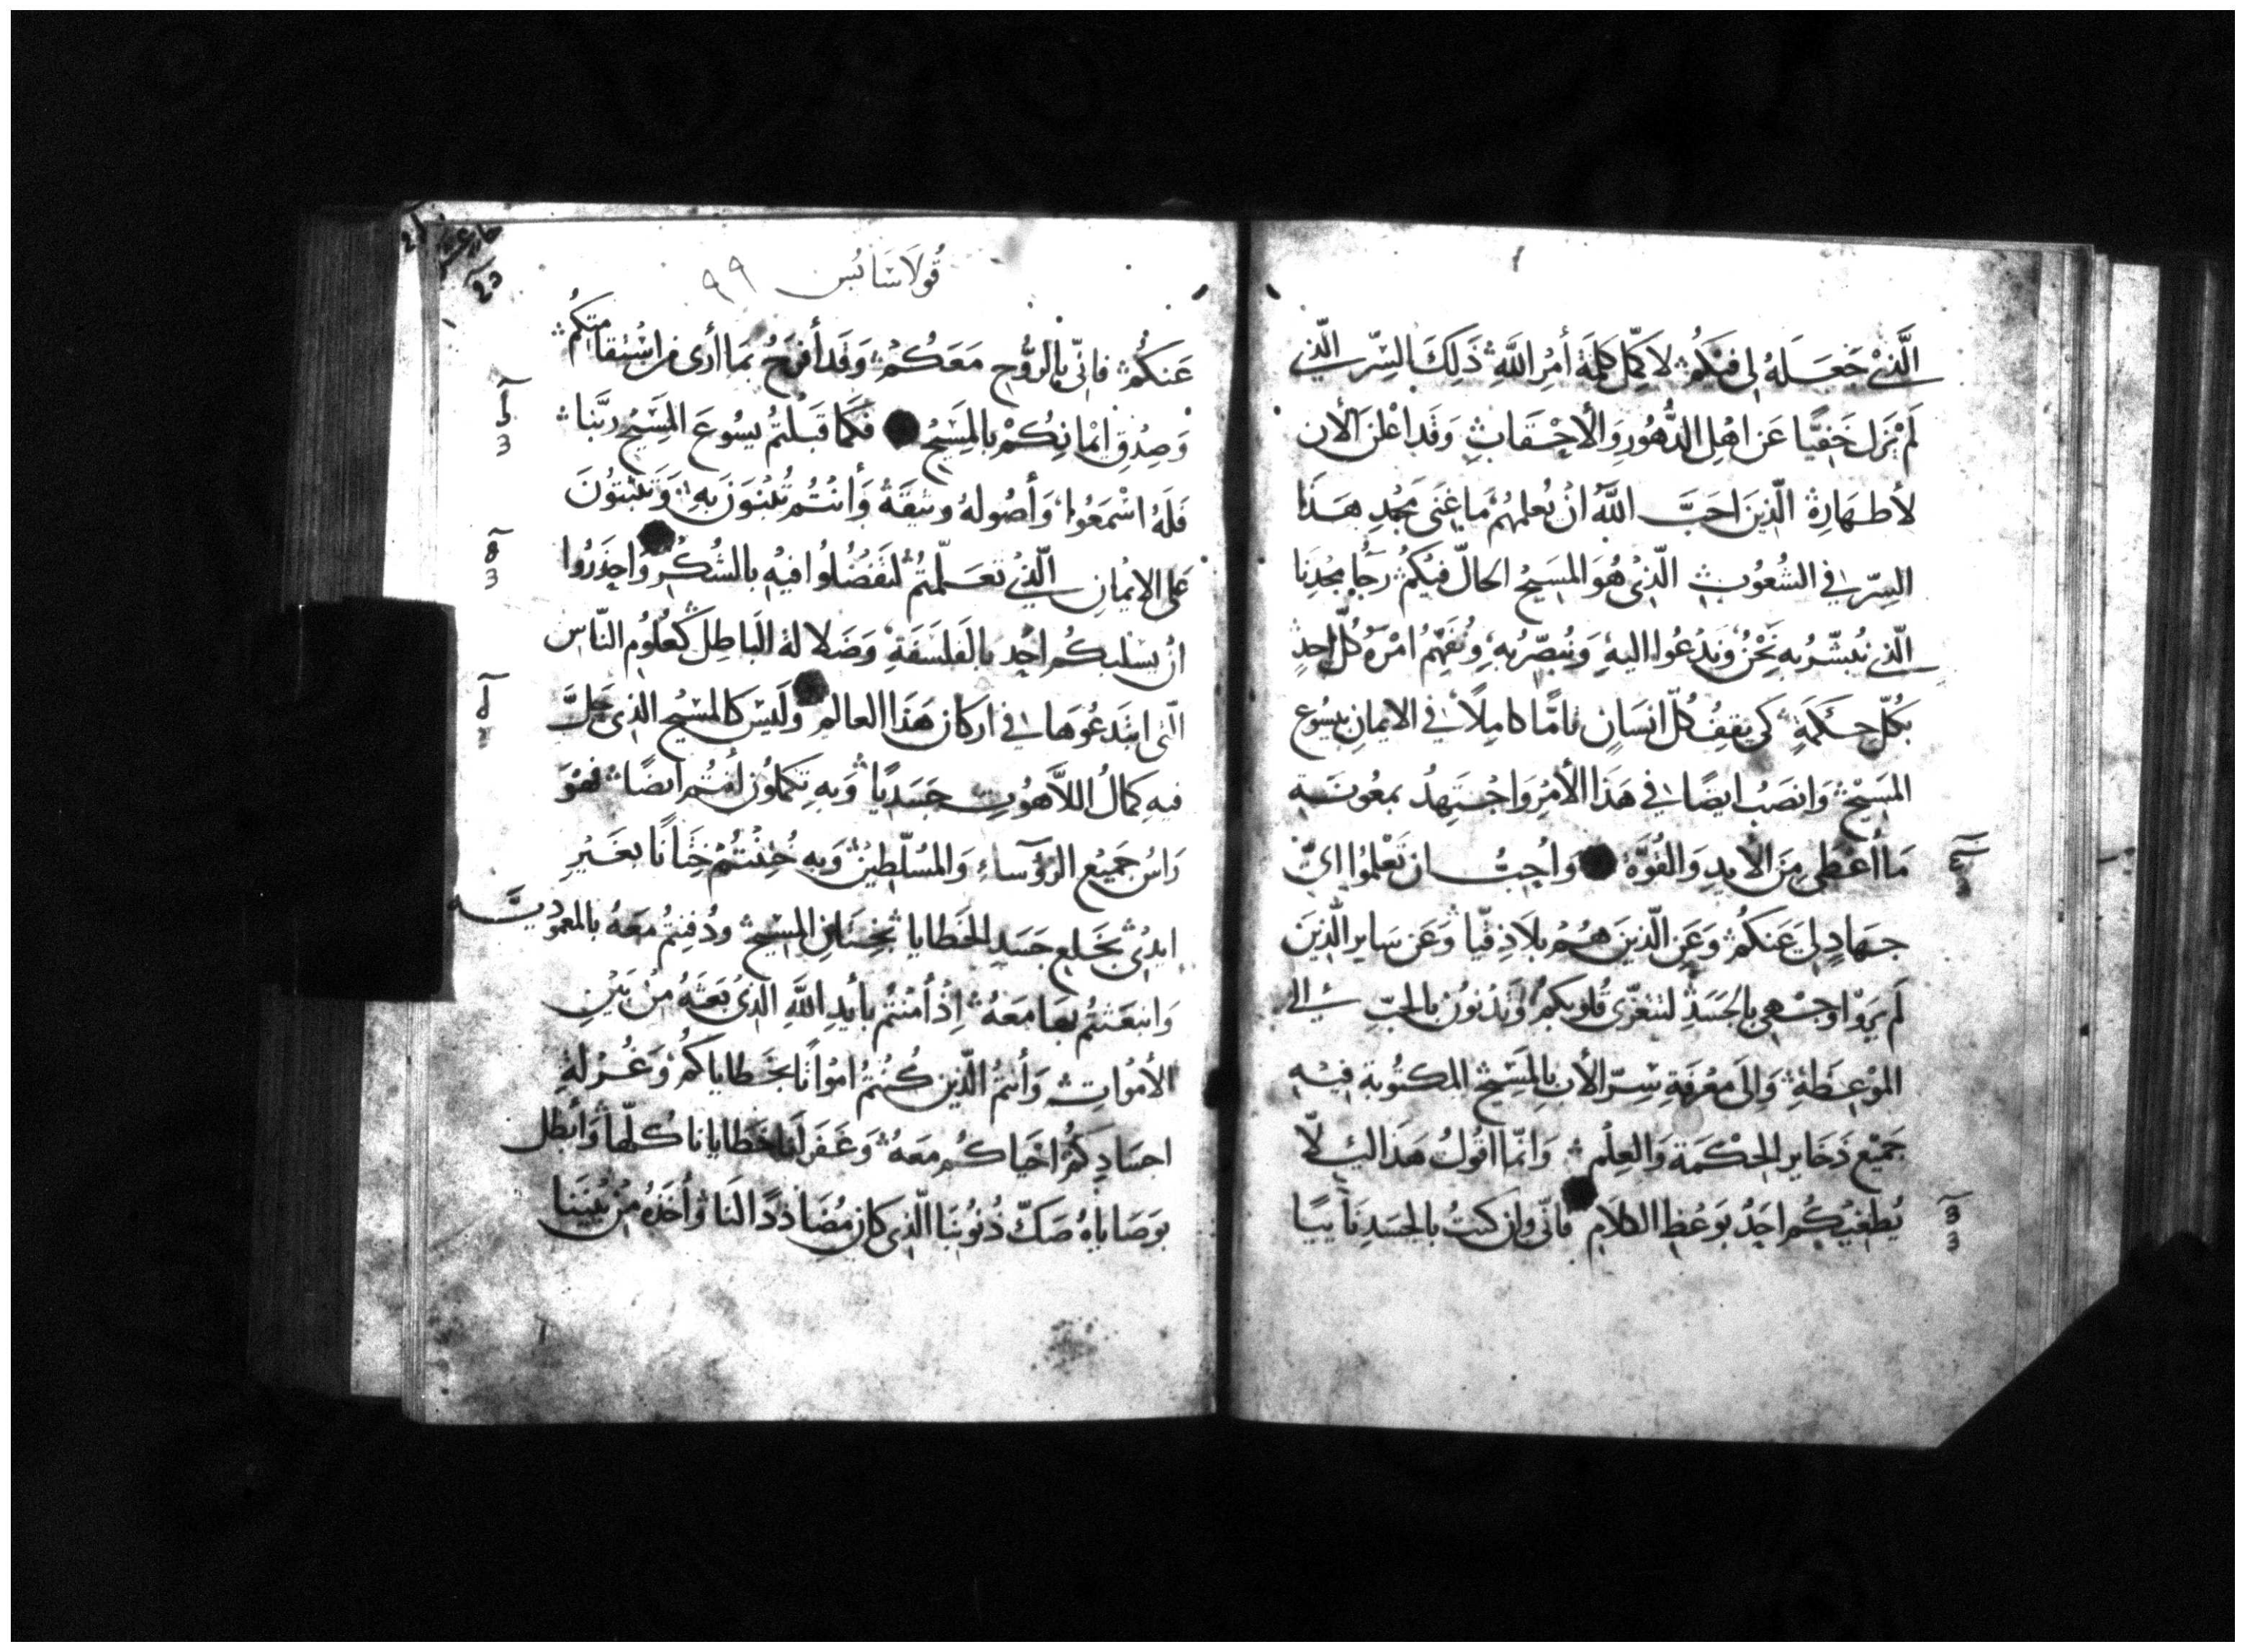 الَّذِيْ جَعَلَهُ لِى فيْكُمْ لاكمِّل كلِمَة أمْرِ اللَّهِ ذَلِكَ بالسِّر الّذي
لَمْ يَزَل خَفيًّا عَن اهْلِ الدُّهُورِ وَالأحْقَابِ وَقَد اعْلنَ الأن
لأطهَارِهْ الّذينَ احَبَّ اللَّهُ انْ يُعلمهُمْ مَا غِنَى مَجْدِ هَذَا
السِّر في الشُعُوبِ الّذِىْ هُوَ المسَيحُ الحالّ فيكُمْ رجَا مجْدِنَا
الّذى نُبشّرُ بهِ نَحْنُ وَنَدْعُوا اليهِ وَنُبصِّرُ بهِ وَنُفَهِّمُ امْرَهُ كُلّ احدٍ
بكُلّ حِكمَةٍ كى يقِفُ كُلّ انسَانٍ تامًّا كامِلاً في الايمانِ بيسُوع
المَسيْح وَانصَبُ ايضًا في هَذا الأمْرِ وَاجْتهدُ بمعُونَة
مَا أعْطى مِنَ الأيدِ وَالقُوَّة وَاحِبُّ ان تَعْلمُوا اىّ
جهَادٍ لِى عَنكُمْ وَعَنِ الّذينَ هُمْ بلاَذقيّا وَعَن سَايرِ الّذينَ
لَم يَروْا وَجْهى بالجَسَدِ لتتعَزّى قُلوبكُم وَتدْنُونَ بالحُبِّ الى
الموْعِظَةِ وَالىَ معْرفَةِ سِرّ الأبِ بالمَسِيح المكتُوبة فيْه
جَميْع ذَخَاير الحِكمَة وَالعِلْم وَانّما اقُولُ هَذا لئلاّ
يُطغيكُم احَدُ بوَعْظِ الكلاَم فانّى وان كنتُ بالجسَدِ نَأييًا
قُولاسَايُس ٩٩
عَنكُمْ فانّى بالرُّوحِ مَعَكُمْ وَقَد أفرَحُ بمَا أرى من اسْتقامَتِكُمْ
وَصِدْقِ ايْمانِكُمْ بالمسَيحْ فكمَا قَبلتُمْ يسُوعَ المسَيحُ ربَّنا
فَلَهُ اسْمَعُوا وَأصُولهُ وثيقَةْ وَأنتُم تُبْنَوَن بهِ وَتثبتُونَ
عَلى الايْمانِ الّذيْ تعَلّمتُمْ لتَفْضُلُوا فيْهِ بالشُكْرِ وَاحْذَرُوا
انْ يسْلبكُم احَد بالفَلسَفةِ وَضَلالة البَاطِل كعُلوُم النّاسِ
الّتى ابتَدعُوهَا في اركان هَذَا العالمِ وَليْسَ كالمسَيْحِ الذى حَلَّ
فيهِ كمَالُ اللاَّهُوتِ جَسَديًا وَبهِ تكمَلوُن أنتُم ايضًا فهُوَ
رَاسُ جَميْع الرؤسَآء وَالمُسَلّطينْ وَبهِ خُتِنتُمْ خِتَانًا بغَيْر
ايدىْ بخَلع جَسَدِ الخَطايا بختَانِ المسَيحْ ودُفنتُم مَعَهُ بالمعموديَّه
وَانبعَثتُم بهَا مَعَهُ اِذْ أمنتُم بأيْدِ اللَّهِ الّذىْ بَعَثَهُ مِنْ بَيْنِ
الأموَاتِ وَأنتُمُ الّذين كُنتُمْ امْوَاتًا بخَطاياكُمْ وَغُرْلةِ
اجسَادِكُمْ احْيَاكُم معَهُ وَغَفَر لَنَا خَطايانا كلّها وَأبطل
بوَصَايَاهُ صَكّ ذُنُوبنَا الّذى كان مُضَاددًا لنَا وَأخَذهُ مِنْ بَيْننَا